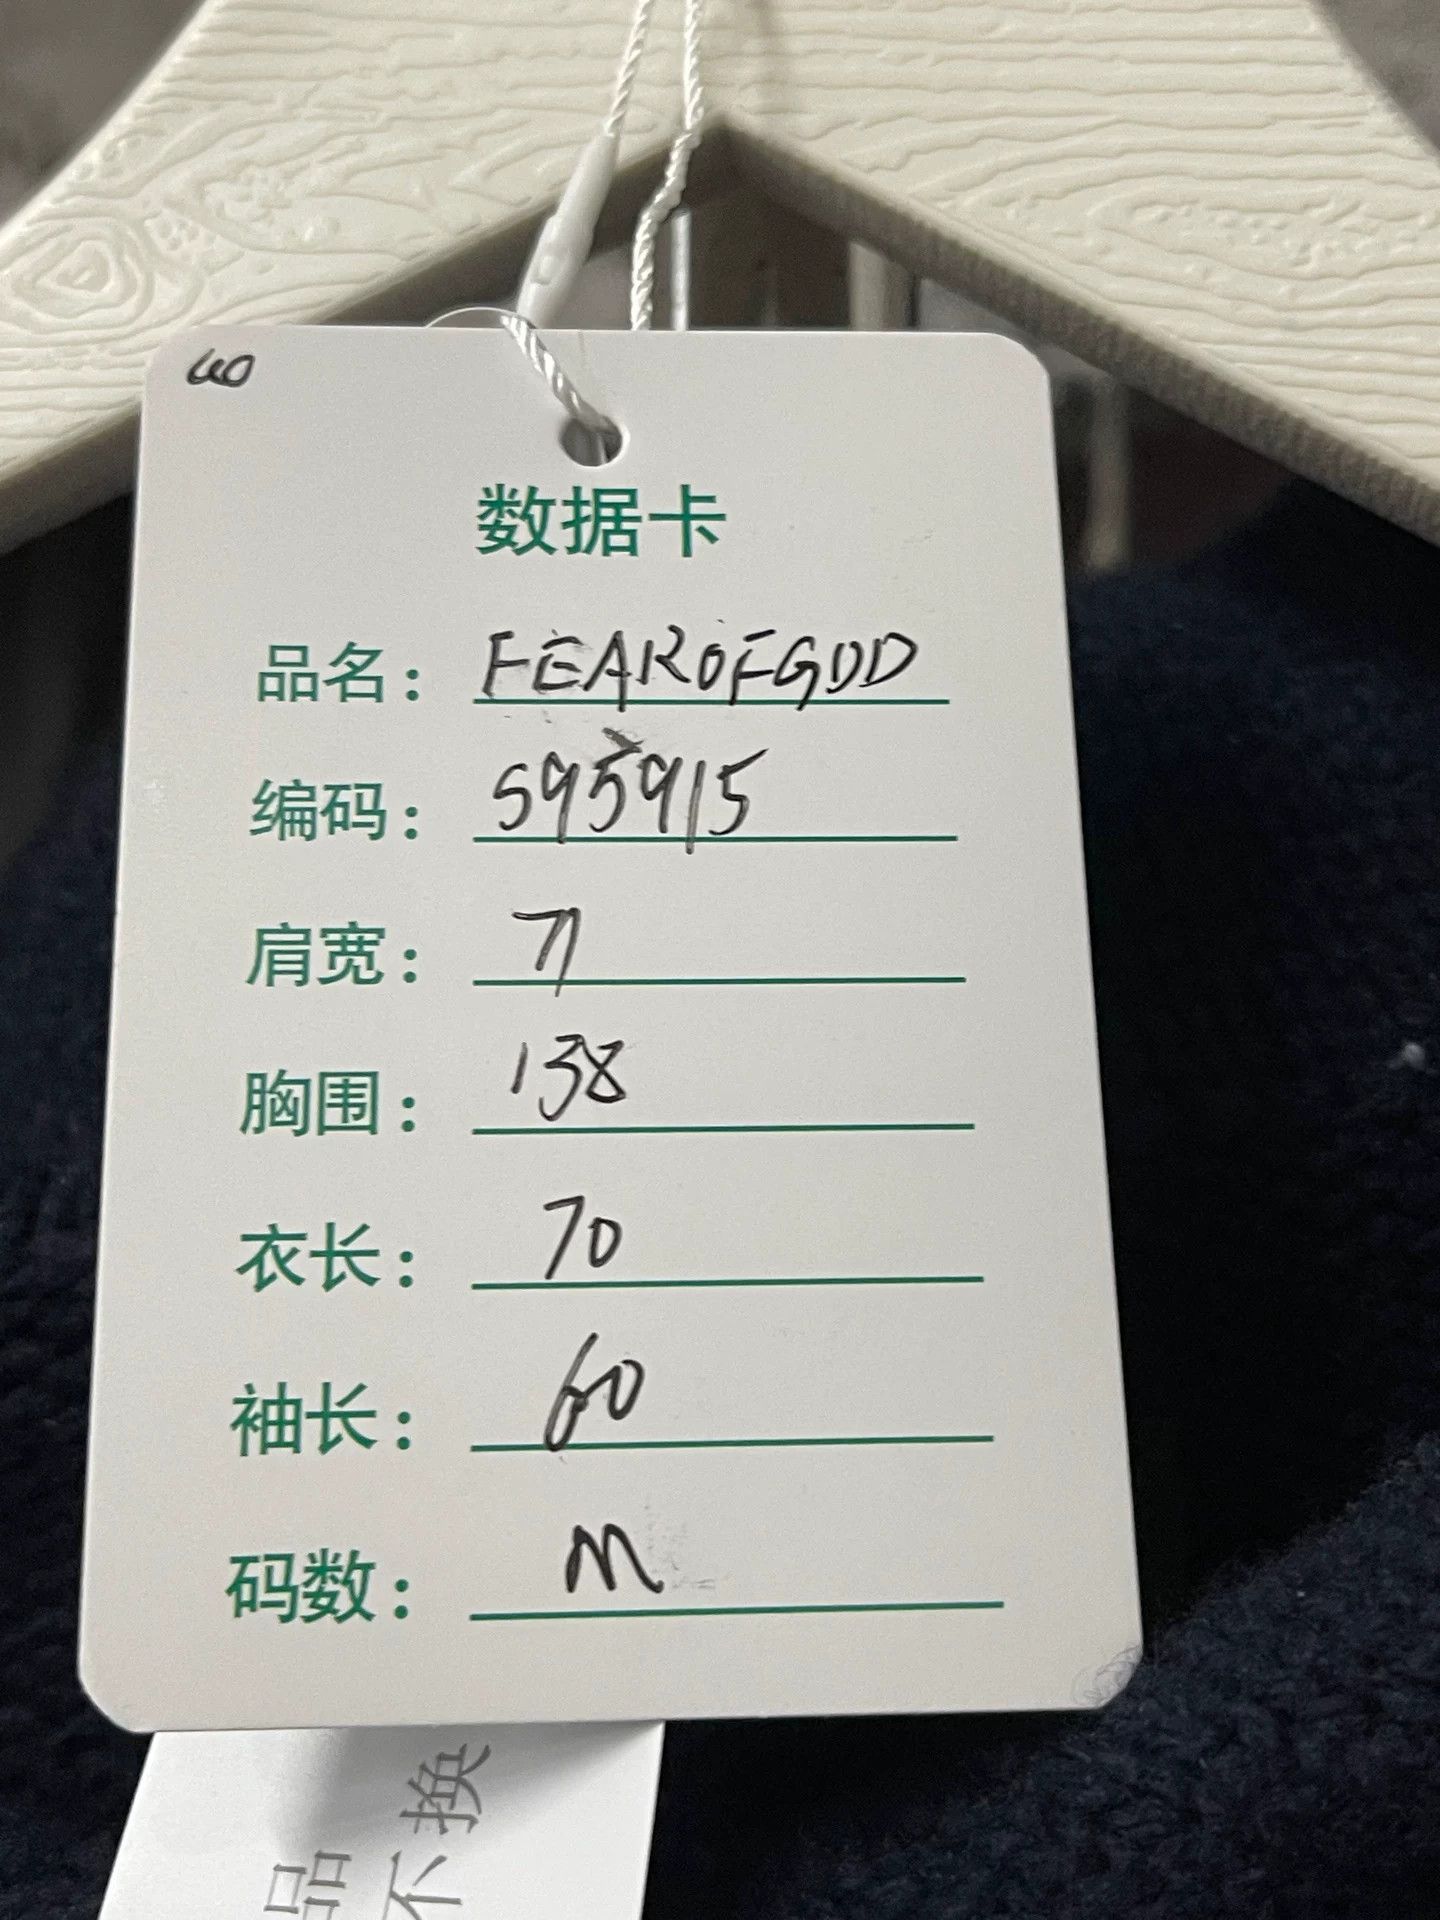 40
数据卡
品名：FEAROFGOD
编码：595915
肩宽：71
胸围：138
衣长：70
袖长：60
码数：M
品
不换